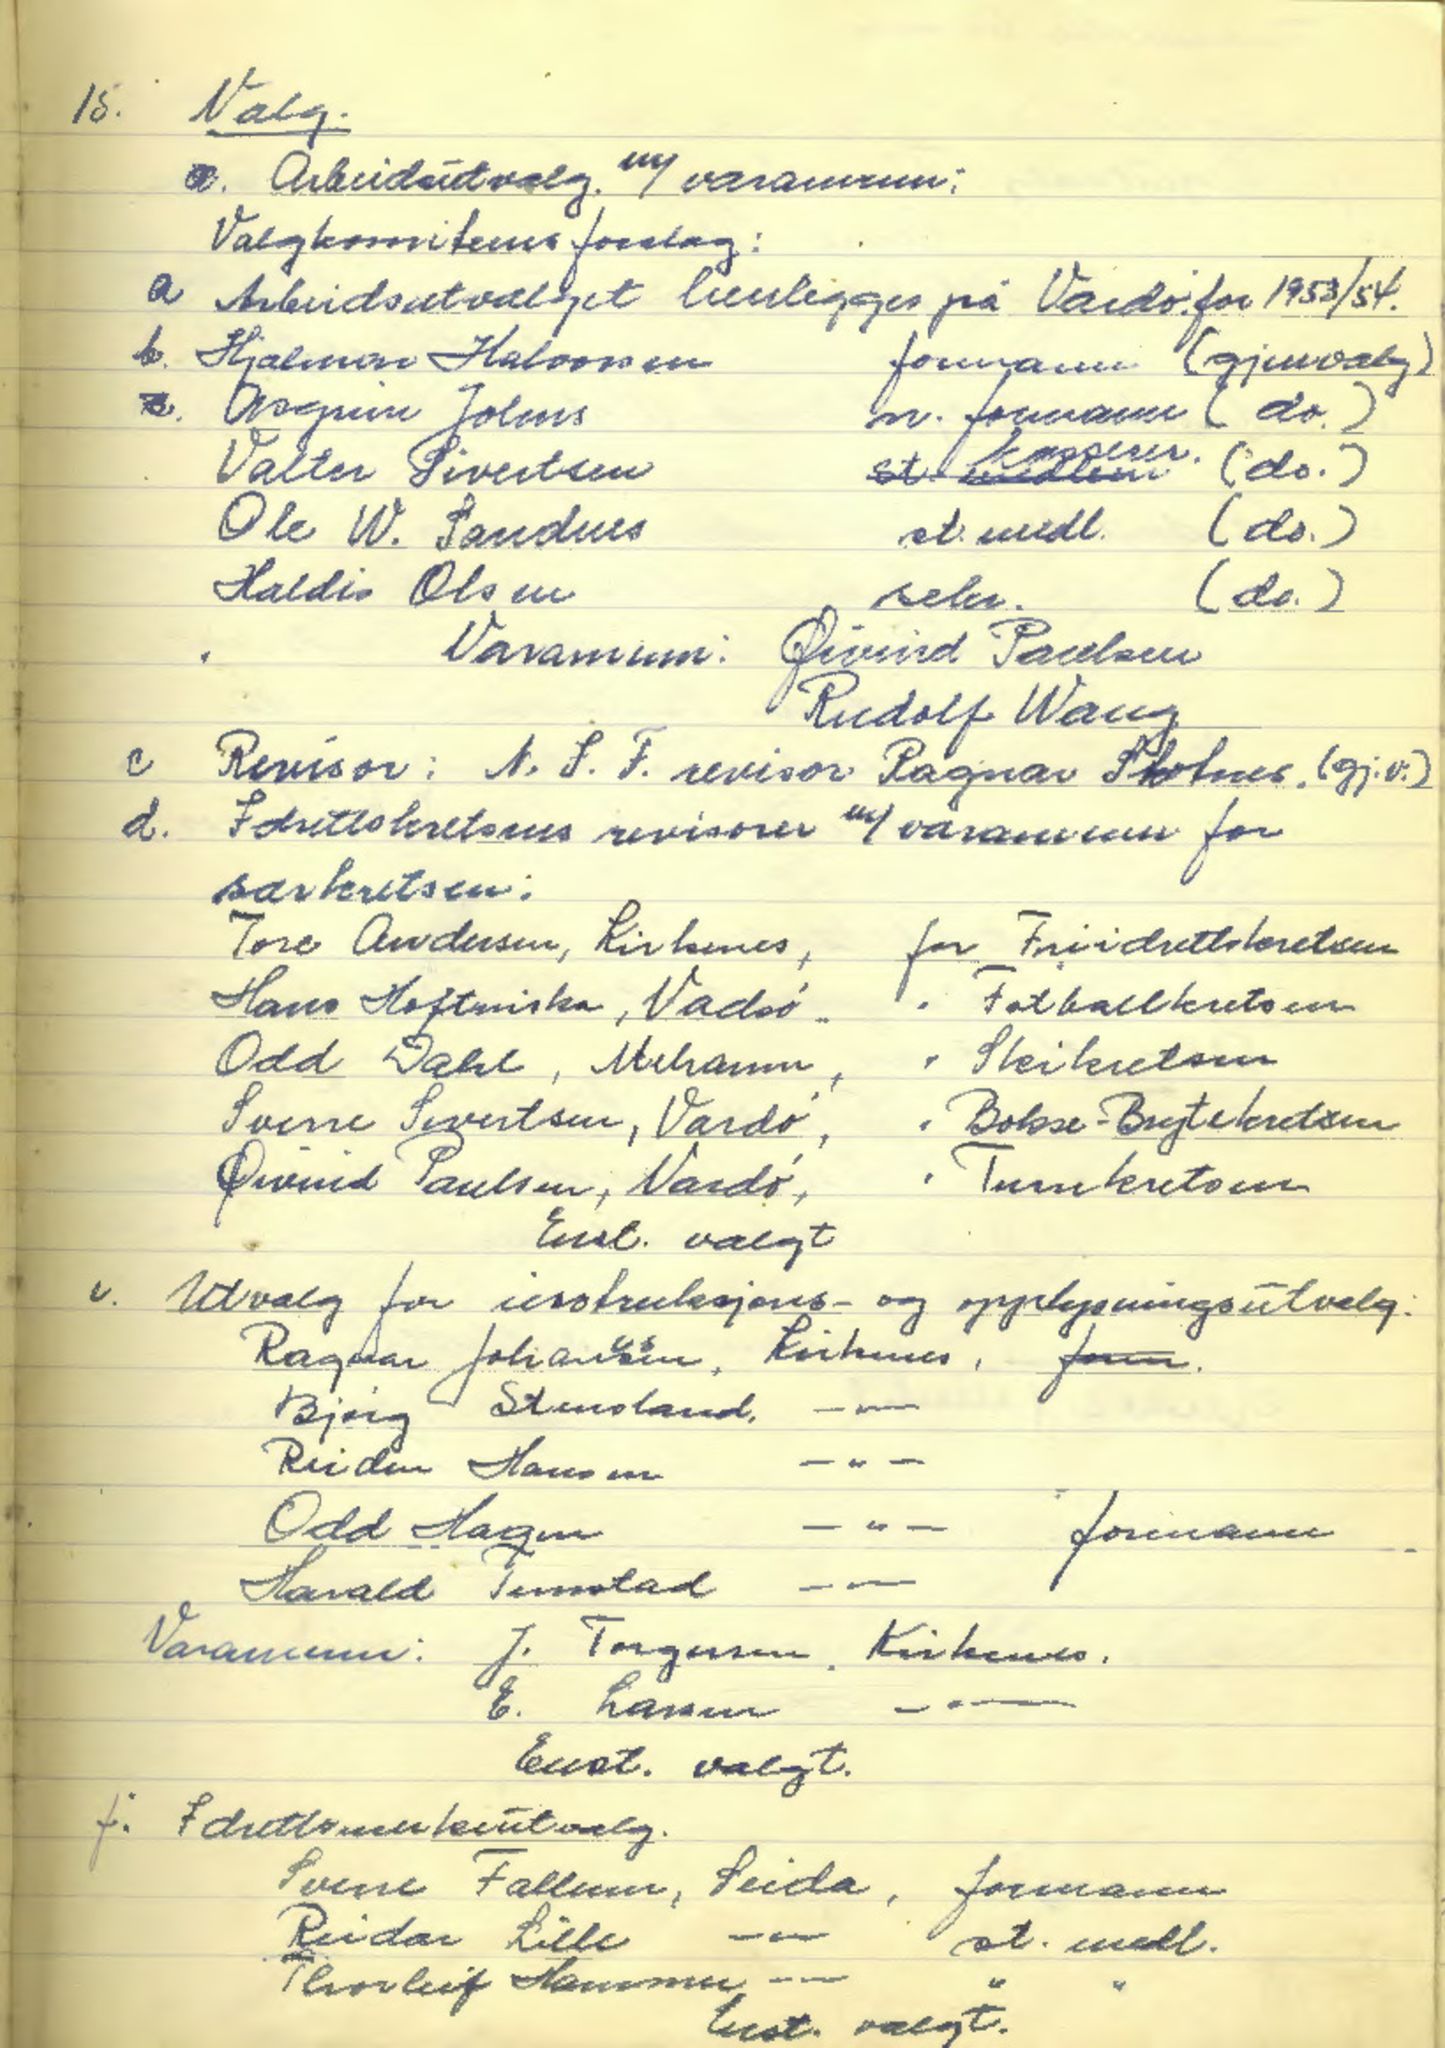 15. Valg.
a. Arbeidsutvalg. m/ varamenn:
Valgkomiteens forslag:
a Arbeidsutvalget henlegges på Vardø for 1953/54.
b. Hjalmar Halvorsen formann (gjenvalg)
Asgrim Johns n. formann (do.)
Valter Sivertsen st. medlem kasserer. (do.)
Ole W. Sandnes st. medl. (do.)
Haldis Olsen sekr. (do.)
Varamenn: Øivind Paulsen
Rudolf Wang
c Revisor: N. S. F. revisor Ragnar (gj.v.)
d. Idrettskretsens revisorer m/ varamenn for
særkretsen:
Tore Andersen, Kirkenes, for Friidrettskretsen
Hans Vadsø. " Fotballkretsen
Odd Dahl, Mehamn, " Skikretsen
Sverre Sivertsen, Vardø, " Bokse-Brytekretsen
Øivind Paulsen, Vardø, " Turnkretsen
Enst. valgt
e. Utvalg for instruksjons- og opplysningsutvalg:
Ragnar Johansen, Kirkenes, form.
Bjørg Stensland, — " —
Reidun Hansen — " —
Odd Hagen — " — formann
Harald — " —
Varamenn: J. Torgersen, Kirkenes.
E. Larsen — " —
Enst. valgt.
f. Idrettsmerkeutvalg.
Sverre Fallum, Seida, formann
Reidar Lille — " — st. medl.
Thorleif — " — " "
Enst. valgt.